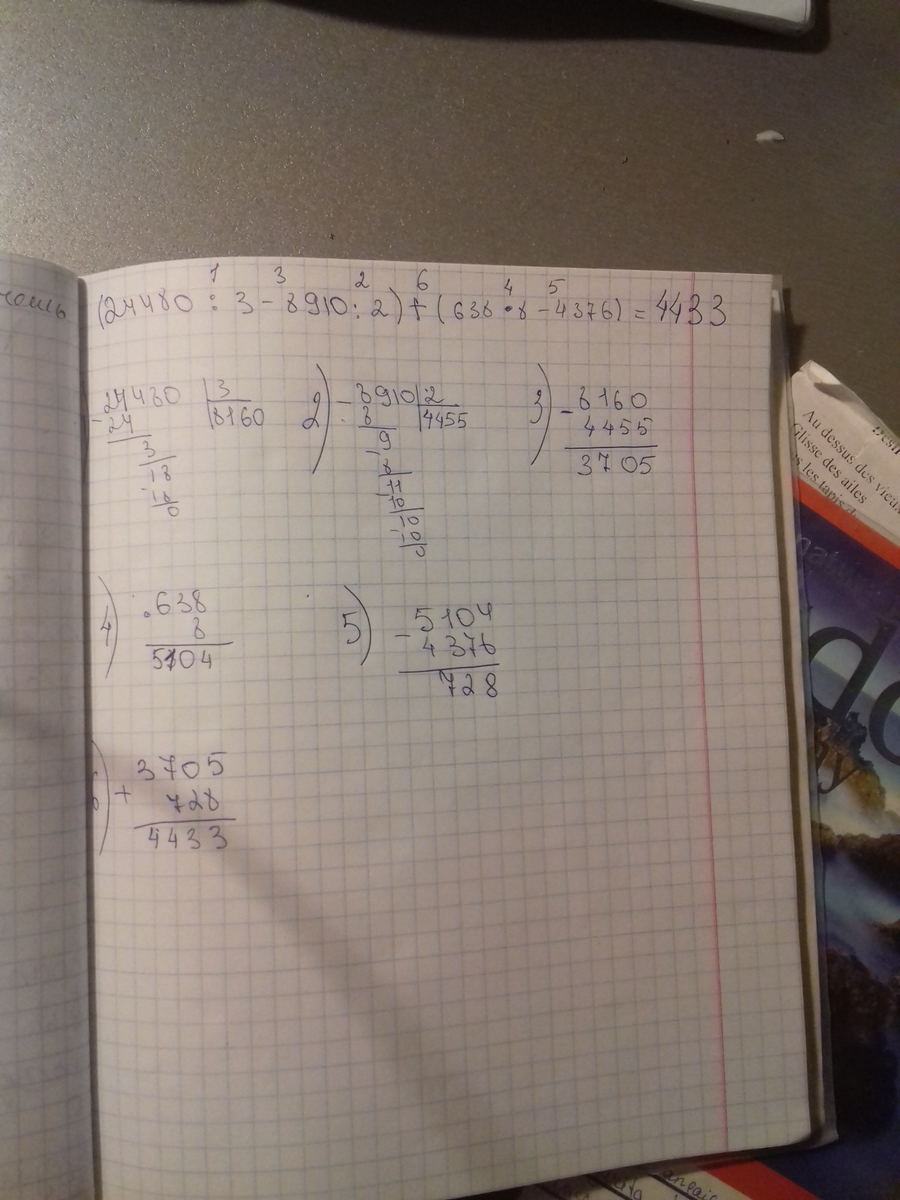 1 3 2 6 4 5
(24480 : 3 - 8910 : 2) + (638 · 8 - 4376) = 4433
24480 3
- 24 8160
3
18
- 18
0
2) - 8910 2
8 4455
9
- 8
11
- 10
10
- 10
0
3) - 8160
4455
3705
4) · 638
8
5104
5) - 5104
4376
728
6) + 3705
728
4433
Au dessus des vieux
Glisse des ailes